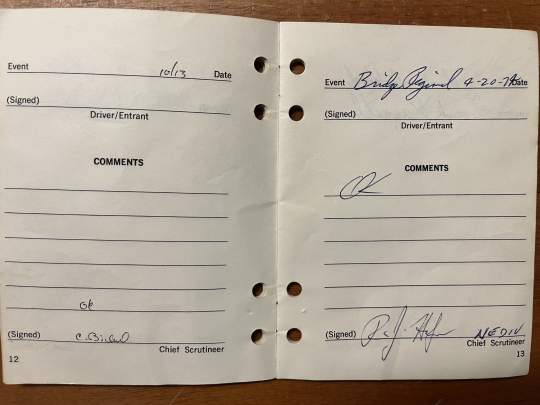 Event 10/13 Date
(Signed)
Driver/Entrant
COMMENTS
OK
(Signed)
Chief Scrutineer
12
Event Bridge 4-20- Date
(Signed)
Driver/Entrant
COMMENTS
OK
(Signed) NEDIV
Chief Scrutineer
13